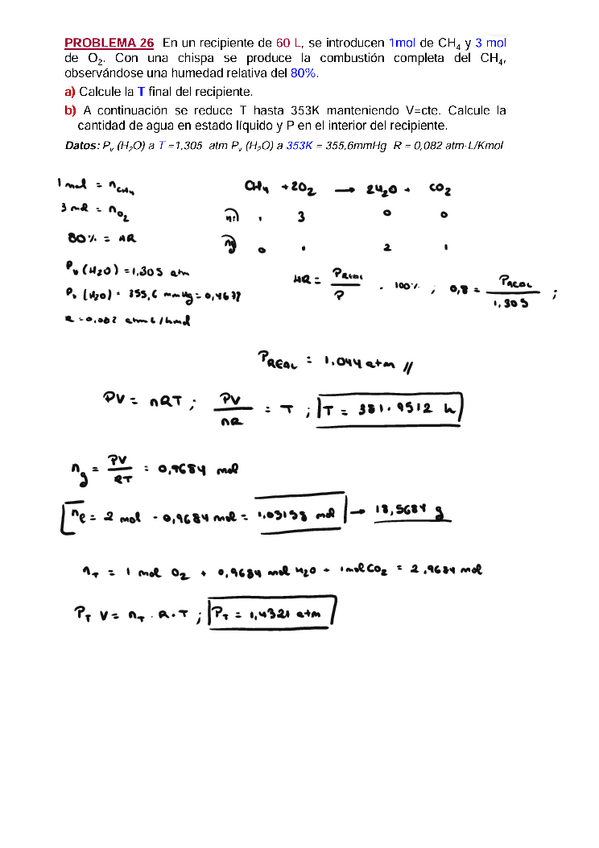 PROBLEMA 26 En un recipiente de 60 L, se introducen 1mol de CH₄ y 3 mol
de O₂. Con una chispa se produce la combustión completa del CH₄,
observándose una humedad relativa del 80%.
a) Calcule la T final del recipiente.
b) A continuación se reduce T hasta 353K manteniendo V=cte. Calcule la
cantidad de agua en estado líquido y P en el interior del recipiente.
Datos: Pᵥ (H₂O) a T =1,305 atm Pᵥ (H₂O) a 353K = 355,6mmHg R = 0,082 atm·L/Kmol
1 mol = n CH₄
3 mol = n O₂
80% = HR
Pᵥ (H₂O) = 1,305 atm
Pᵥ (H₂O) = 355,6 mmHg = 0,4679
R = 0,082 atm L/kmol
CH₄ + 2O₂ → 2H₂O + CO₂
1 3 0 0
0 1 2 1
HR = P REAL / P · 100% ; 0,8 = P REAL / 1,305 ;
P REAL = 1,044 atm //
PV = nRT ; PV / nR = T ; T = 381.9512 k
n g = PV / RT = 0,9684 mol
n e = 2 mol - 0,9684 mol = 1,03158 mol → 18,5684 g
n T = 1 mol O₂ + 0,9684 mol H₂O + 1 mol CO₂ = 2,9684 mol
P T V = n T · R · T ; P T = 1,4321 atm